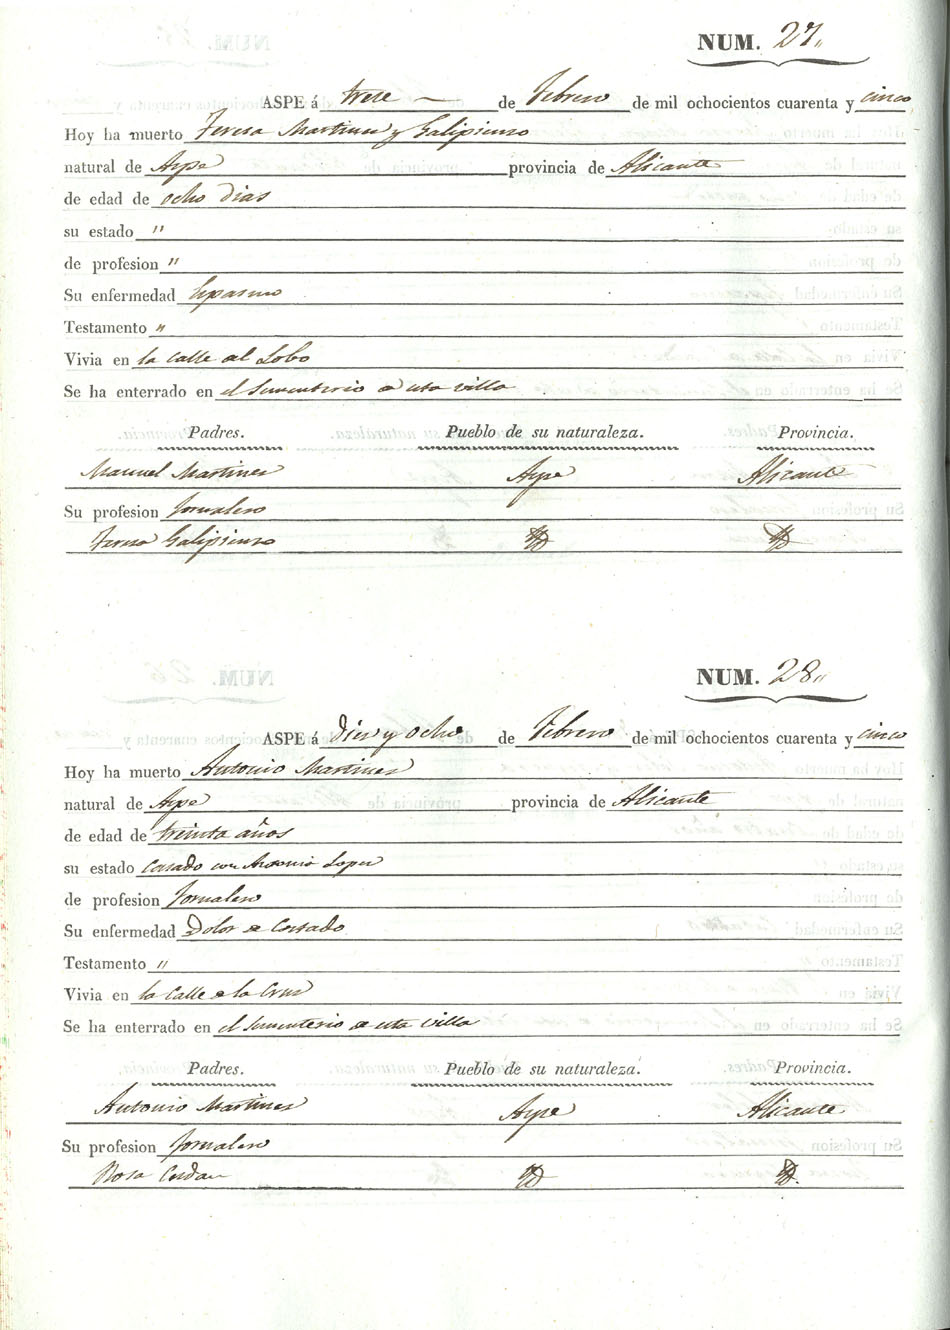 NUM. 27,,
ASPE á trese — de Febrero de mil ochocientos cuarenta y cinco
Hoy ha muerto Teresa Martines y Galipienso
natural de Aspe provincia de Alicante
de edad de ocho dias
su estado "
de profesion "
Su enfermedad Espasmo
Testamento "
Vivia en la calle del Lobo
Se ha enterrado en el Sementerio de esta villa
Padres. Pueblo de su naturaleza. Provincia.
Manuel Martines Aspe Alicante
Su profesion Jornalero
Teresa Galipienso
NUM. 28,,
ASPE á dies y ocho de Febrero de mil ochocientos cuarenta y cinco
Hoy ha muerto Antonio Martines
natural de Aspe provincia de Alicante
de edad de treinta años
su estado casado con Antonia Lopes
de profesion Jornalero
Su enfermedad Dolor de Costado
Testamento "
Vivia en la Calle de la Crus
Se ha enterrado en el Sementerio de esta villa
Padres. Pueblo de su naturaleza. Provincia.
Antonio Martines Aspe Alicante
Su profesion Jornalero
Rosa Cerdan